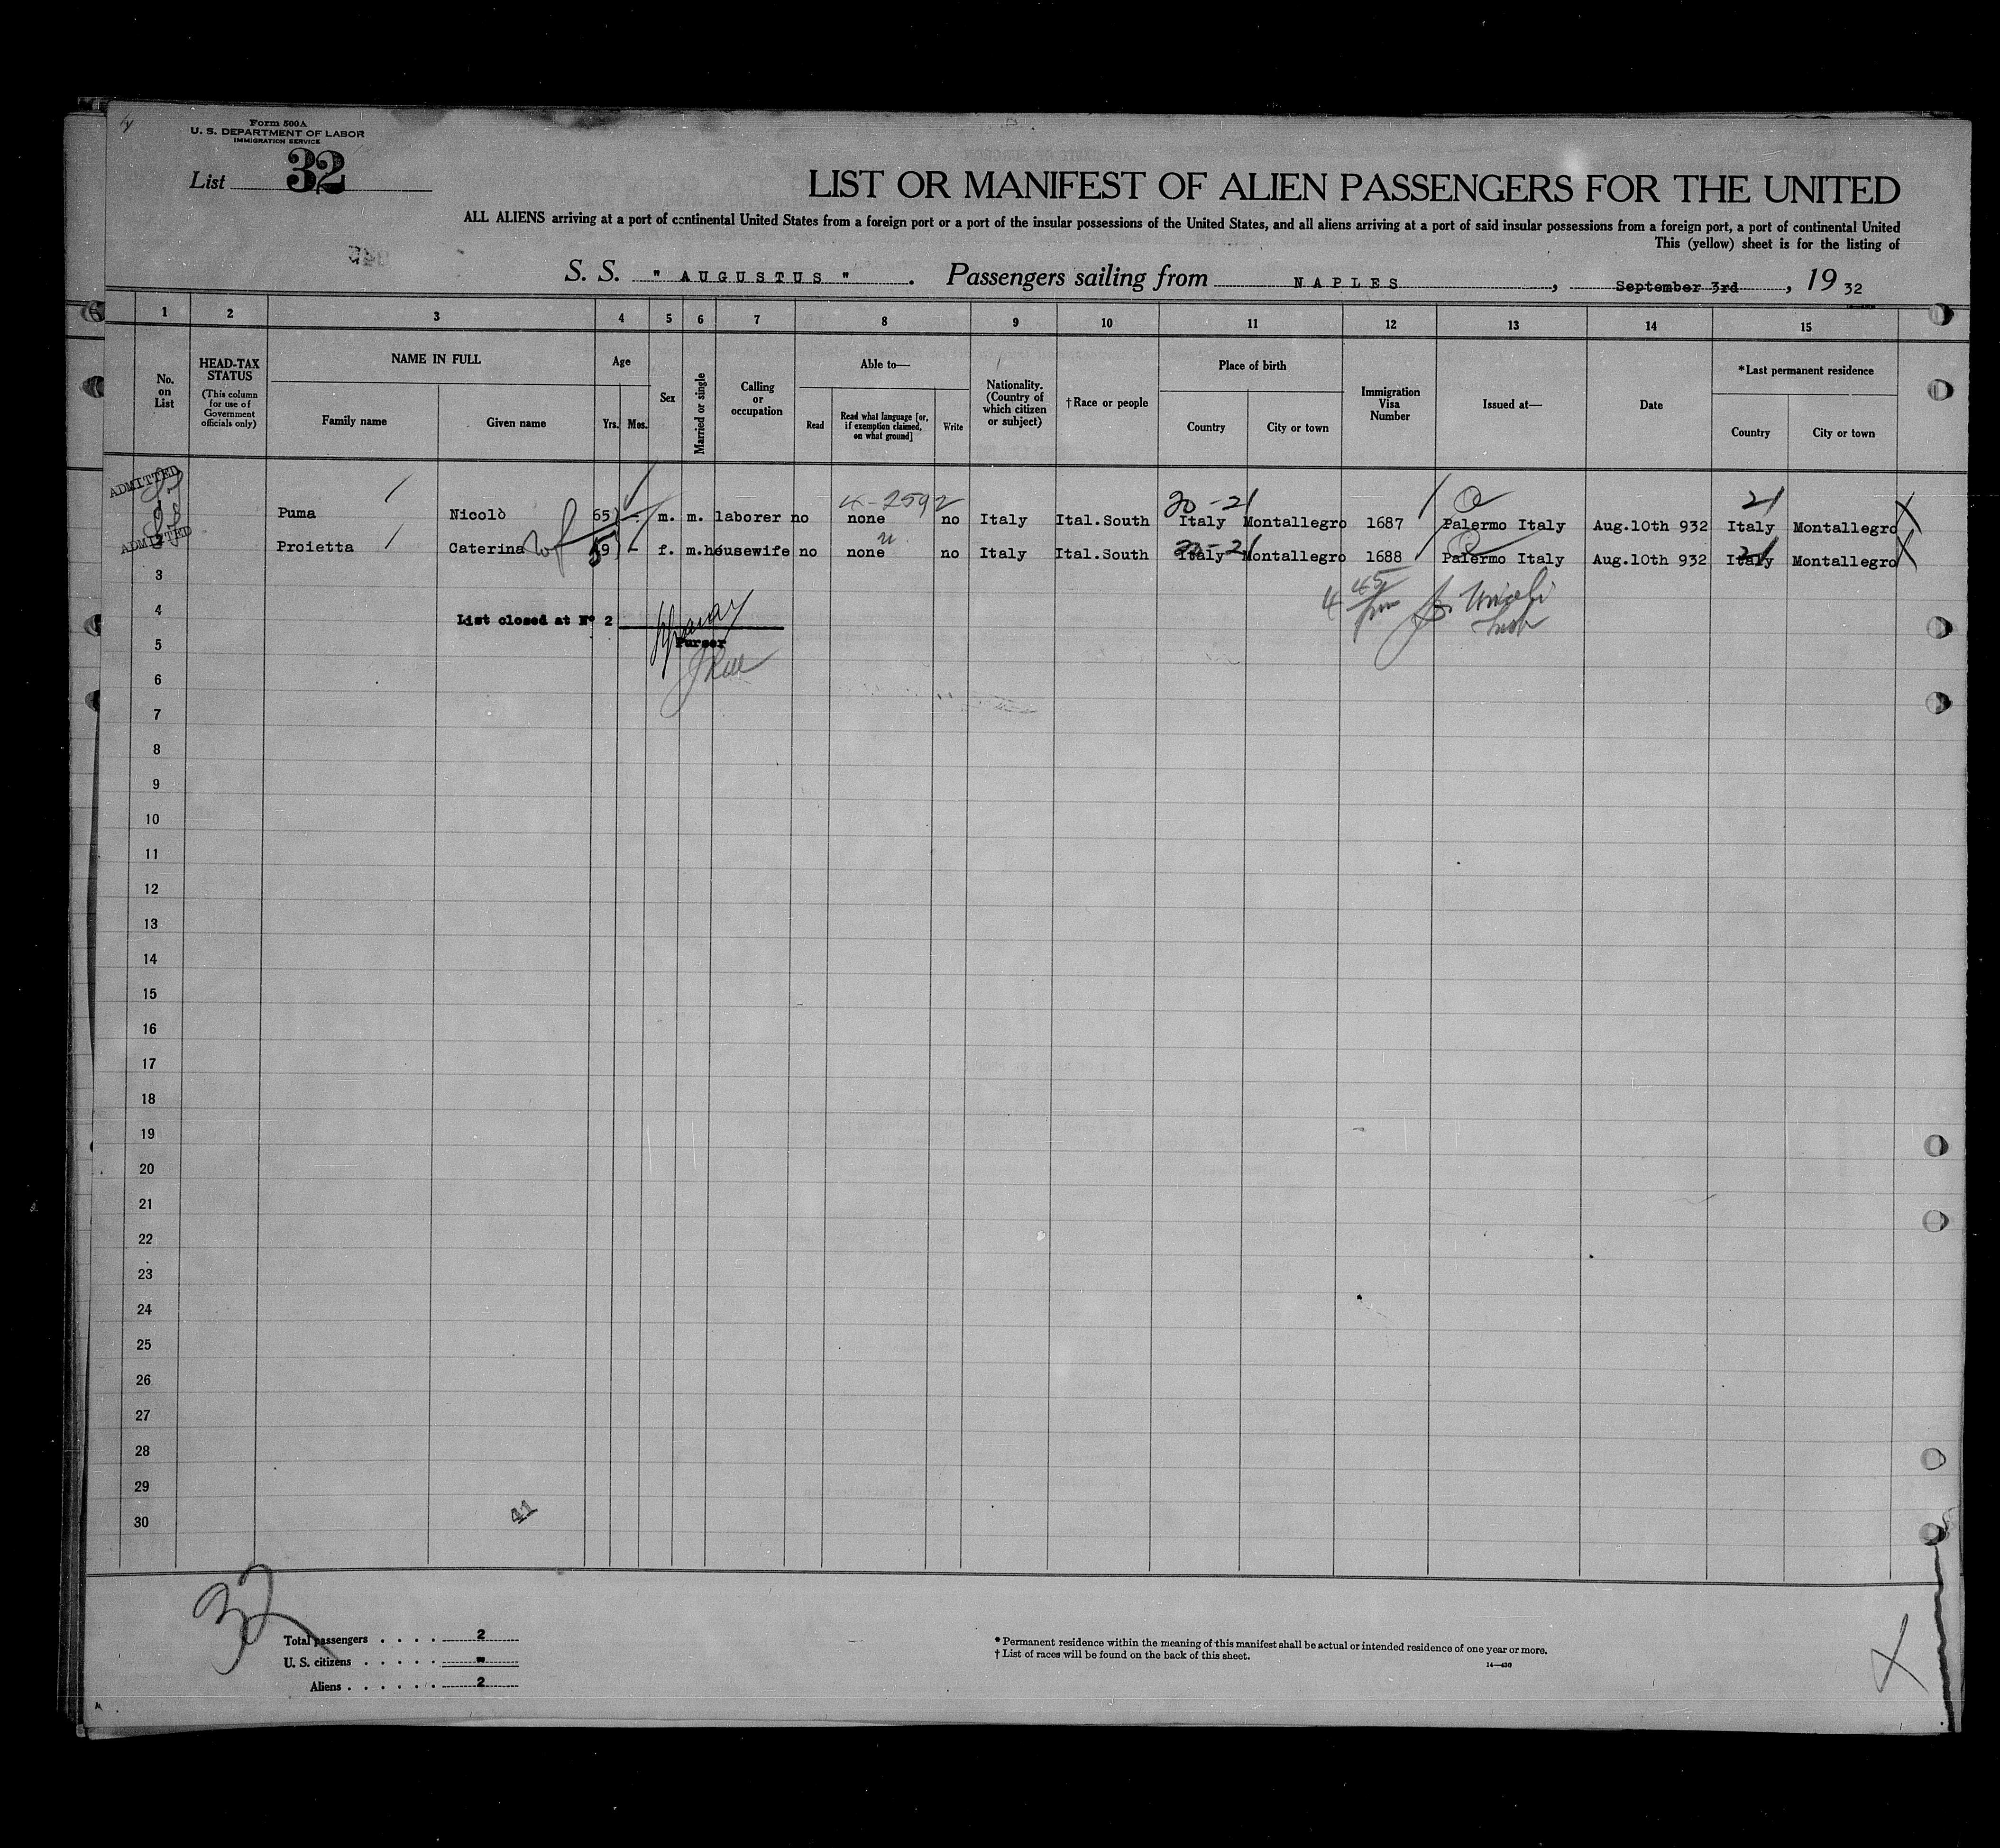 Form 500A
U. S. DEPARTMENT OF LABOR
IMMIGRATION SERVICE
List 32
LIST OR MANIFEST OF ALIEN PASSENGERS FOR THE UNITED
ALL ALIENS arriving at a port of continental United States from a foreign port or a port of the insular possessions of the United States, and all aliens arriving at a port of said insular possessions from a foreign port, a port of continental United
This (yellow) sheet is for the listing of
S. S. " AUGUSTUS ". Passengers sailing from NAPLES, September 3rd, 19 32
1 2 3 4 5 6 7 8 9 10 11 12 13 14 15
No. on List
HEAD-TAX STATUS
(This column for use of Government officials only)
NAME IN FULL
Family name
Given name
Age
Yrs. Mos.
Sex
Married or single
Calling or occupation
Able to—
Read
Read what language [or, if exemption claimed, on what ground]
Write
Nationality. (Country of which citizen or subject)
†Race or people
Place of birth
Country
City or town
Immigration Visa Number
Issued at—
Date
*Last permanent residence
Country
City or town
ADMITTED
4-2592 20 -21 21
Puma Nicolò 65 - m. m. laborer no none no Italy Ital.South Italy Montallegro 1687 Palermo Italy Aug.10th 932 Italy Montallegro X
ADMITTED
Proietta Caterina wf 59 - f. m. housewife no none no Italy Ital.South Italy Montallegro 1688 Palermo Italy Aug.10th 932 Italy Montallegro X
3
4 45 pm
List closed at Nº 2
Purser
4
5
6
7
8
9
10
11
12
13
14
15
16
17
18
19
20
21
22
23
24
25
26
27
28
29
30
41
32
Total passengers . . . . 2
U. S. citizens . . . . . -
Aliens . . . . . . 2
* Permanent residence within the meaning of this manifest shall be actual or intended residence of one year or more.
† List of races will be found on the back of this sheet.
14—430
X